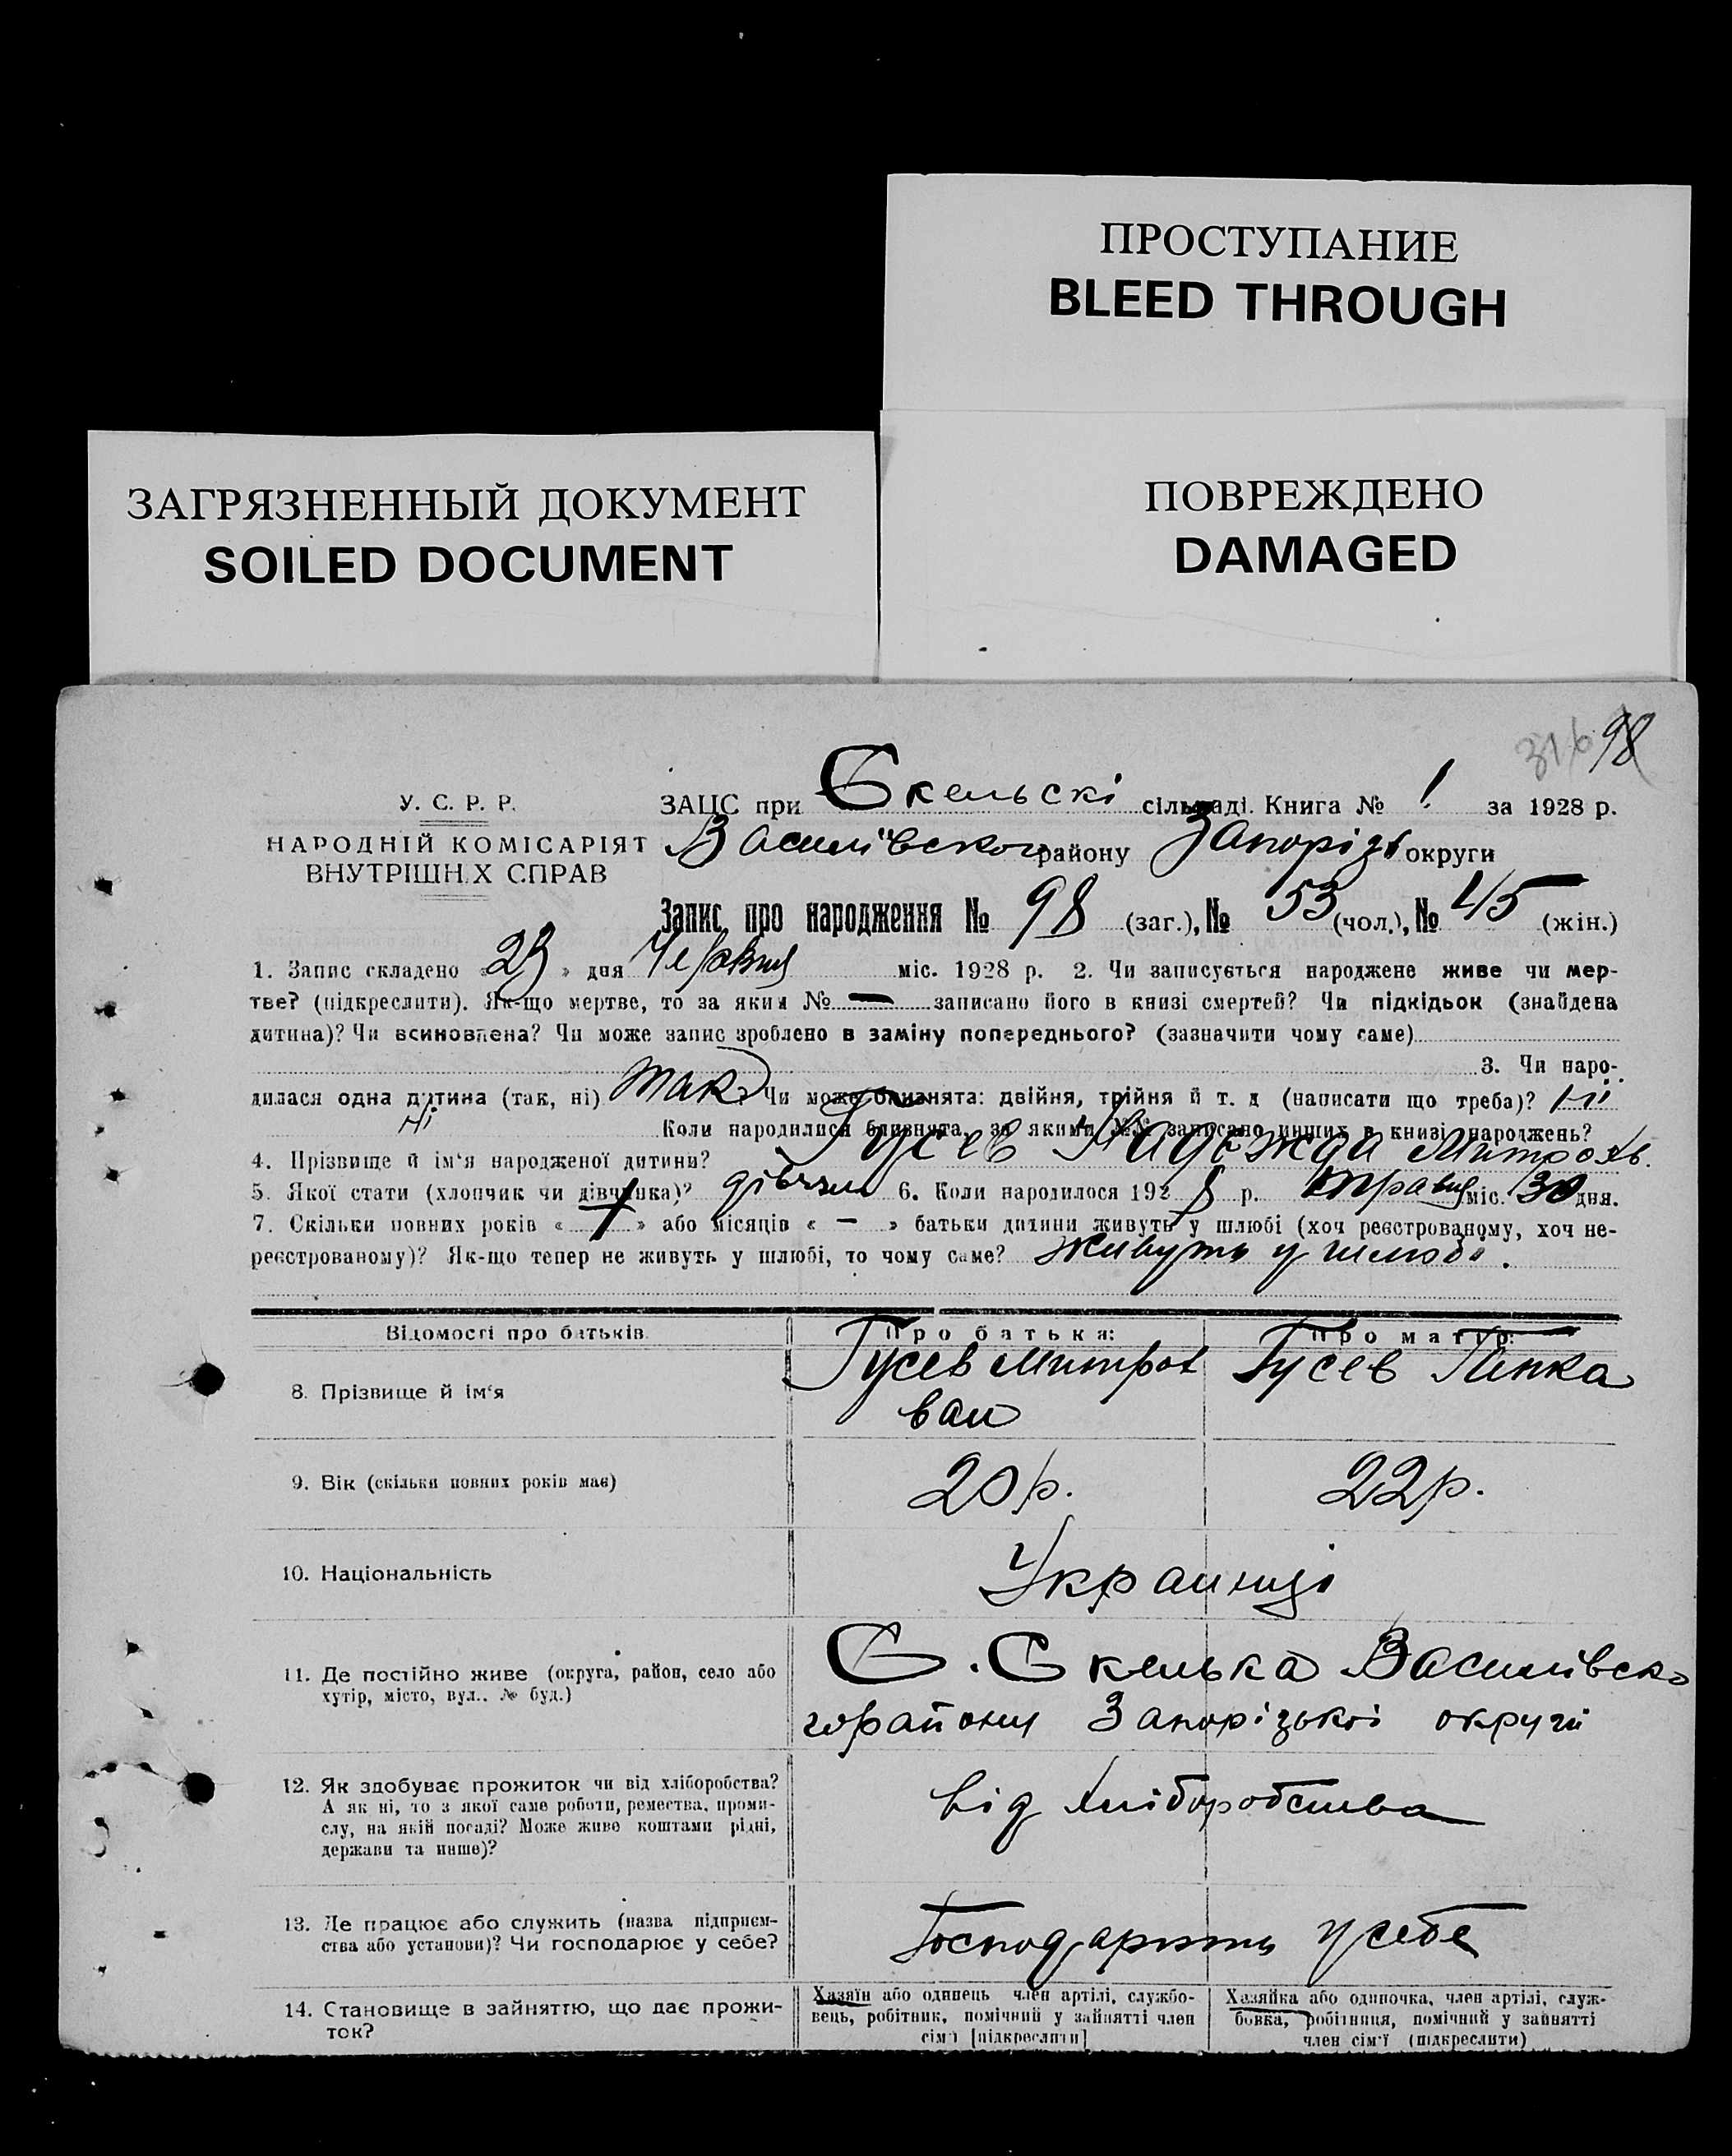 ПРОСТУПАНИЕ
BLEED THROUGH
ЗАГРЯЗНЕННЫЙ ДОКУМЕНТ
SOILED DOCUMENT
ПОВРЕЖДЕНО
DAMAGED
316 98
У. С. Р. Р.
НАРОДНІЙ КОМІСАРІЯТ
ВНУТРІШНІХ СПРАВ
ЗАЦС при Скельскі сільраді. Книга № 1 за 1928 р.
Василівского району Запорізь округи
Запис про народження № 98 (заг.), № 53 (чол.), № 45 (жін.)
1. Запис складено «23» дня Червня міс. 1928 р. 2. Чи записується народжене живе чи мер-
тве? (підкреслити). Як-що мертве, то за яким № — записано його в книзі смертей? Чи підкідьок (знайдена
дитина)? Чи всиновлена? Чи може запис зроблено в заміну попереднього? (зазначити чому саме)
3. Чи наро-
дилася одна дитина (так, ні) так? Чи може близнята: двійня, трійня й т. д (написати що треба)? Ні
Ні Коли народилися близнята, за якими №№ записано инших в книзі народжень?
4. Прізвище й ім‘я народженої дитини? Гусев Надежда Митрохв.
5. Якої стати (хлопчик чи дівчинка)? дівчин 6. Коли народилося 1928 р. Травня міс. 30 дня.
7. Скільки повних років «1» або місяців « — » батьки дитини живуть у шлюбі (хоч реєстрованому, хоч не-
реєстрованому)? Як-що тепер не живуть у шлюбі, то чому саме? Живуть у шлюбі.
Відомості про батьків
Про батька:
Про матір:
8. Прізвище й ім‘я
Гусев Митрох
ван
Гусев
9. Вік (скільки повних років має)
20 р.
22 р.
10. Національність
Украинці
11. Де постійно живе (округа, район, село або
хутір, місто, вул.. № буд.)
С. Скелька Василівско
го району Запорізької округи
12. Як здобуває прожиток чи від хліборобства?
А як ні, то з якої саме роботи, ремества, проми-
слу, на якій посаді? Може живе коштами рідні,
держави та инше)?
від хліборобства
13. Де працює або служить (назва підприєм-
ства або установи)? Чи господарює у себе?
Господарють у себе
14. Становище в зайняттю, що дає прожи-
ток?
Хазяїн або одинець член артілі, службо-
вець, робітник, помічний у зайнятті член
сім‘ї [підкреслити]
Хазяйка або одиночка, член артілі, служ-
бовка, робітниця, помічний у зайнятті
член сім‘ї (підкреслити)